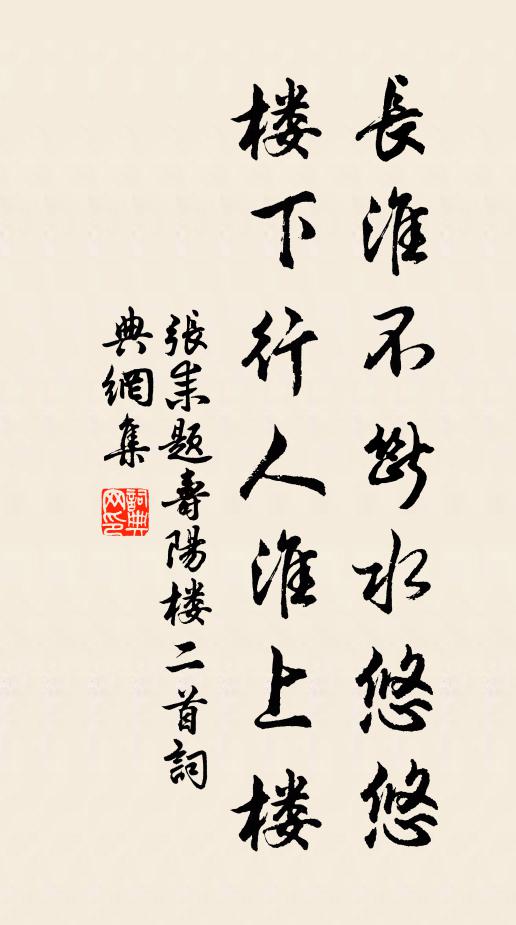 長淮不斷水悠悠
楼下行人淮上楼
張耒題壽陽楼二首詞
典網集
詞典网印